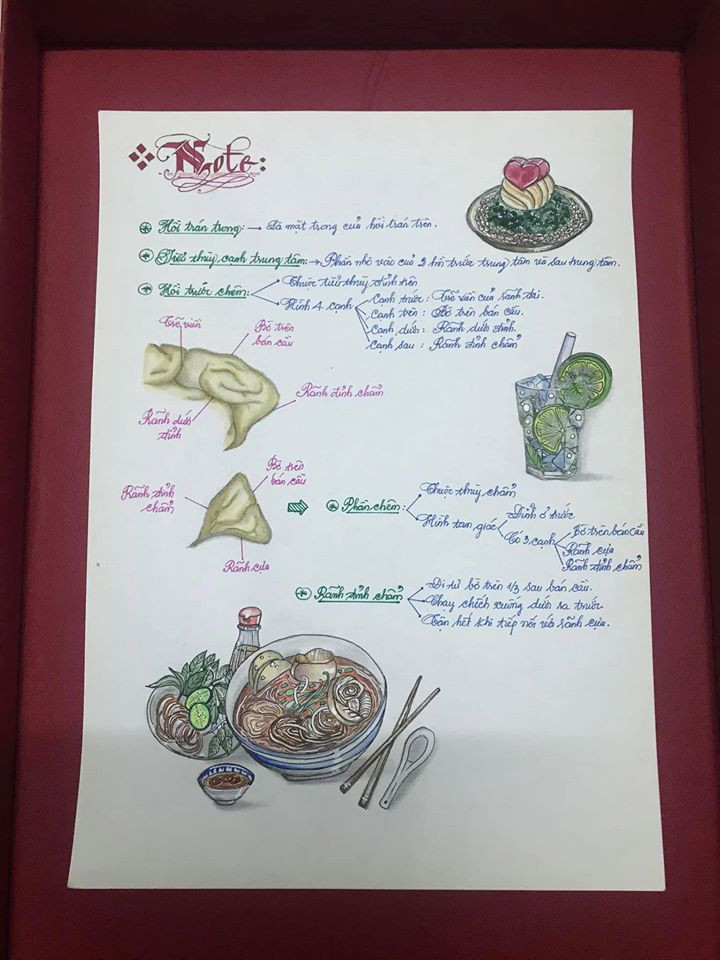 Note:
Hồi trán trong: → Là mặt trong của hồi trán trên.
Tiểu thùy cạnh trung tâm: → Phần nhỏ vào của 2 hồi trước trung tâm và sau trung tâm.
Hồi trước chêm:
Thuộc tiểu thùy đỉnh trên
Hình 4 cạnh
Cạnh trước: Trẽ viền của rãnh đai.
Cạnh trên: Bờ trên bán cầu.
Cạnh dưới: Rãnh dưới đỉnh.
Cạnh sau: Rãnh đỉnh chẩm
Trẽ viền
Bờ trên
bán cầu
Rãnh đỉnh chẩm
Rãnh dưới
đỉnh
Bờ trên
bán cầu
Rãnh đỉnh
chẩm
Rãnh cựa
Phần chêm:
Thuộc thùy chẩm
Hình tam giác
Đỉnh ở trước
Có 3 cạnh
Bờ trên bán cầu
Rãnh cựa
Rãnh đỉnh chẩm
Rãnh đỉnh chẩm
Đi từ bờ trên 1/3 sau bán cầu.
Chạy chếch xuống dưới ra trước.
Tận hết khi tiếp nối với rãnh cựa.